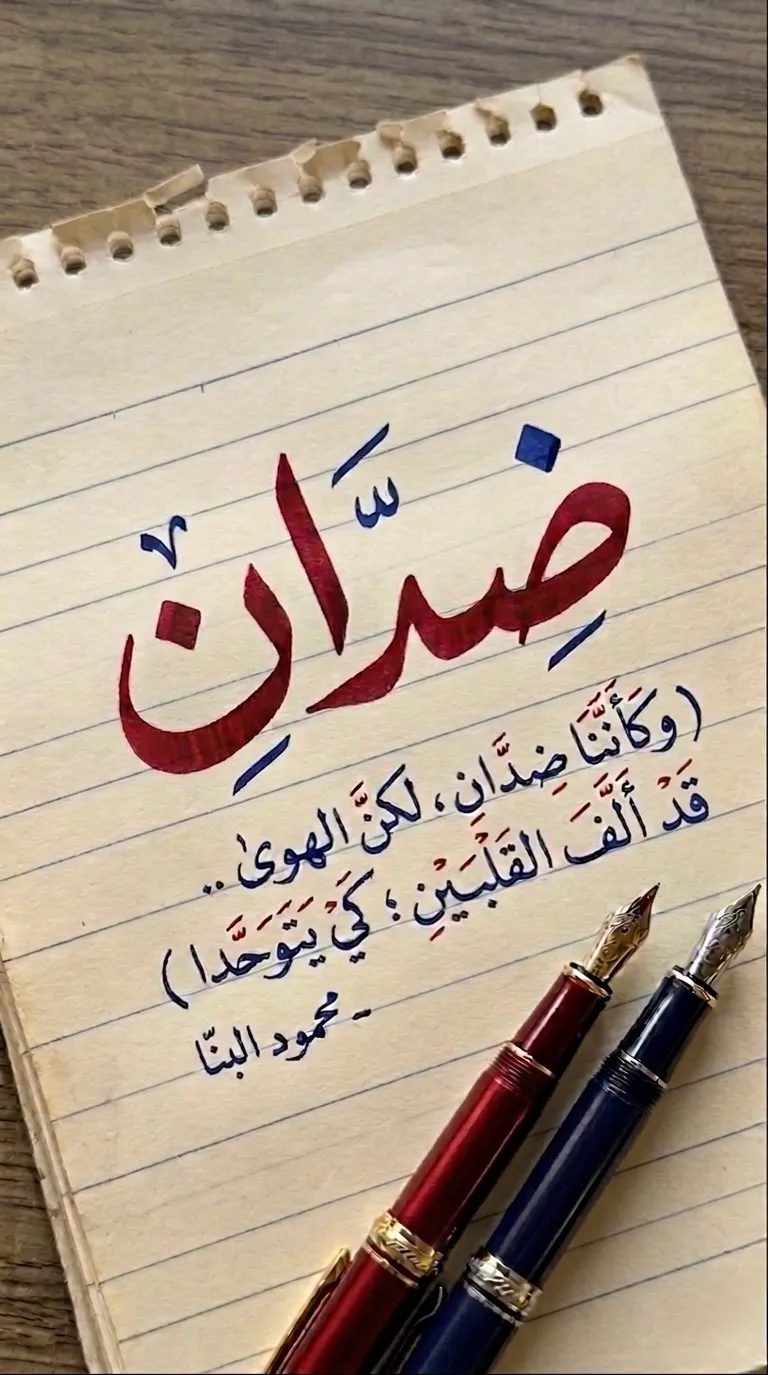 ضِدَّانِ
(وَكَأَنَّنَا ضِدَّانِ، لكنَّ الهوىٰ ..
قَدْ أَلَّفَ القَلْبَيْنِ؛ كَيْ يَتَوَحَّدا)
- محمود البنّا